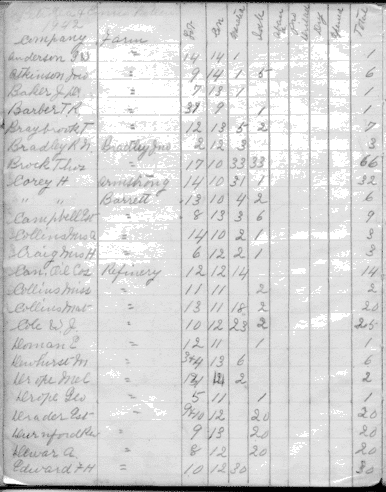 1942
Company Farm Lot Con Total
Anderson J W " 14 14 1 1
Atkinson Jos " 9 14 1 5 6
Baker J. W. " 7 13 1 1
Barber T R " 9 1 1
Braybrook T " 12 13 5 2 7
Bradley R. N. Bradley Jno 2 12 3 3
Brock Thos " 17 10 33 33 66
Corey H Armstrong 14 10 31 1 32
" " Barrett 13 10 4 2 6
Campbell Est " 8 13 3 6 9
Collins Mrs A " 14 10 2 1 3
Craig Mrs H " 6 12 2 1 3
Can. Oil Cos Refinery 12 12 14 14
Collins Miss " 11 11 2 2
Collins Mat " 13 11 18 2 20
Cole W. J. " 10 12 23 2 25
Doman E " 12 11 1 1
Dewhurst M " 13 6 6
Drope Mel " 2 2
Drope Geo " 5 11 1 1
Drader Est " 12 20 20
Durnford " 9 13 20 20
Dewar A. " 8 12 20 20
Edward F H " 10 12 30 30